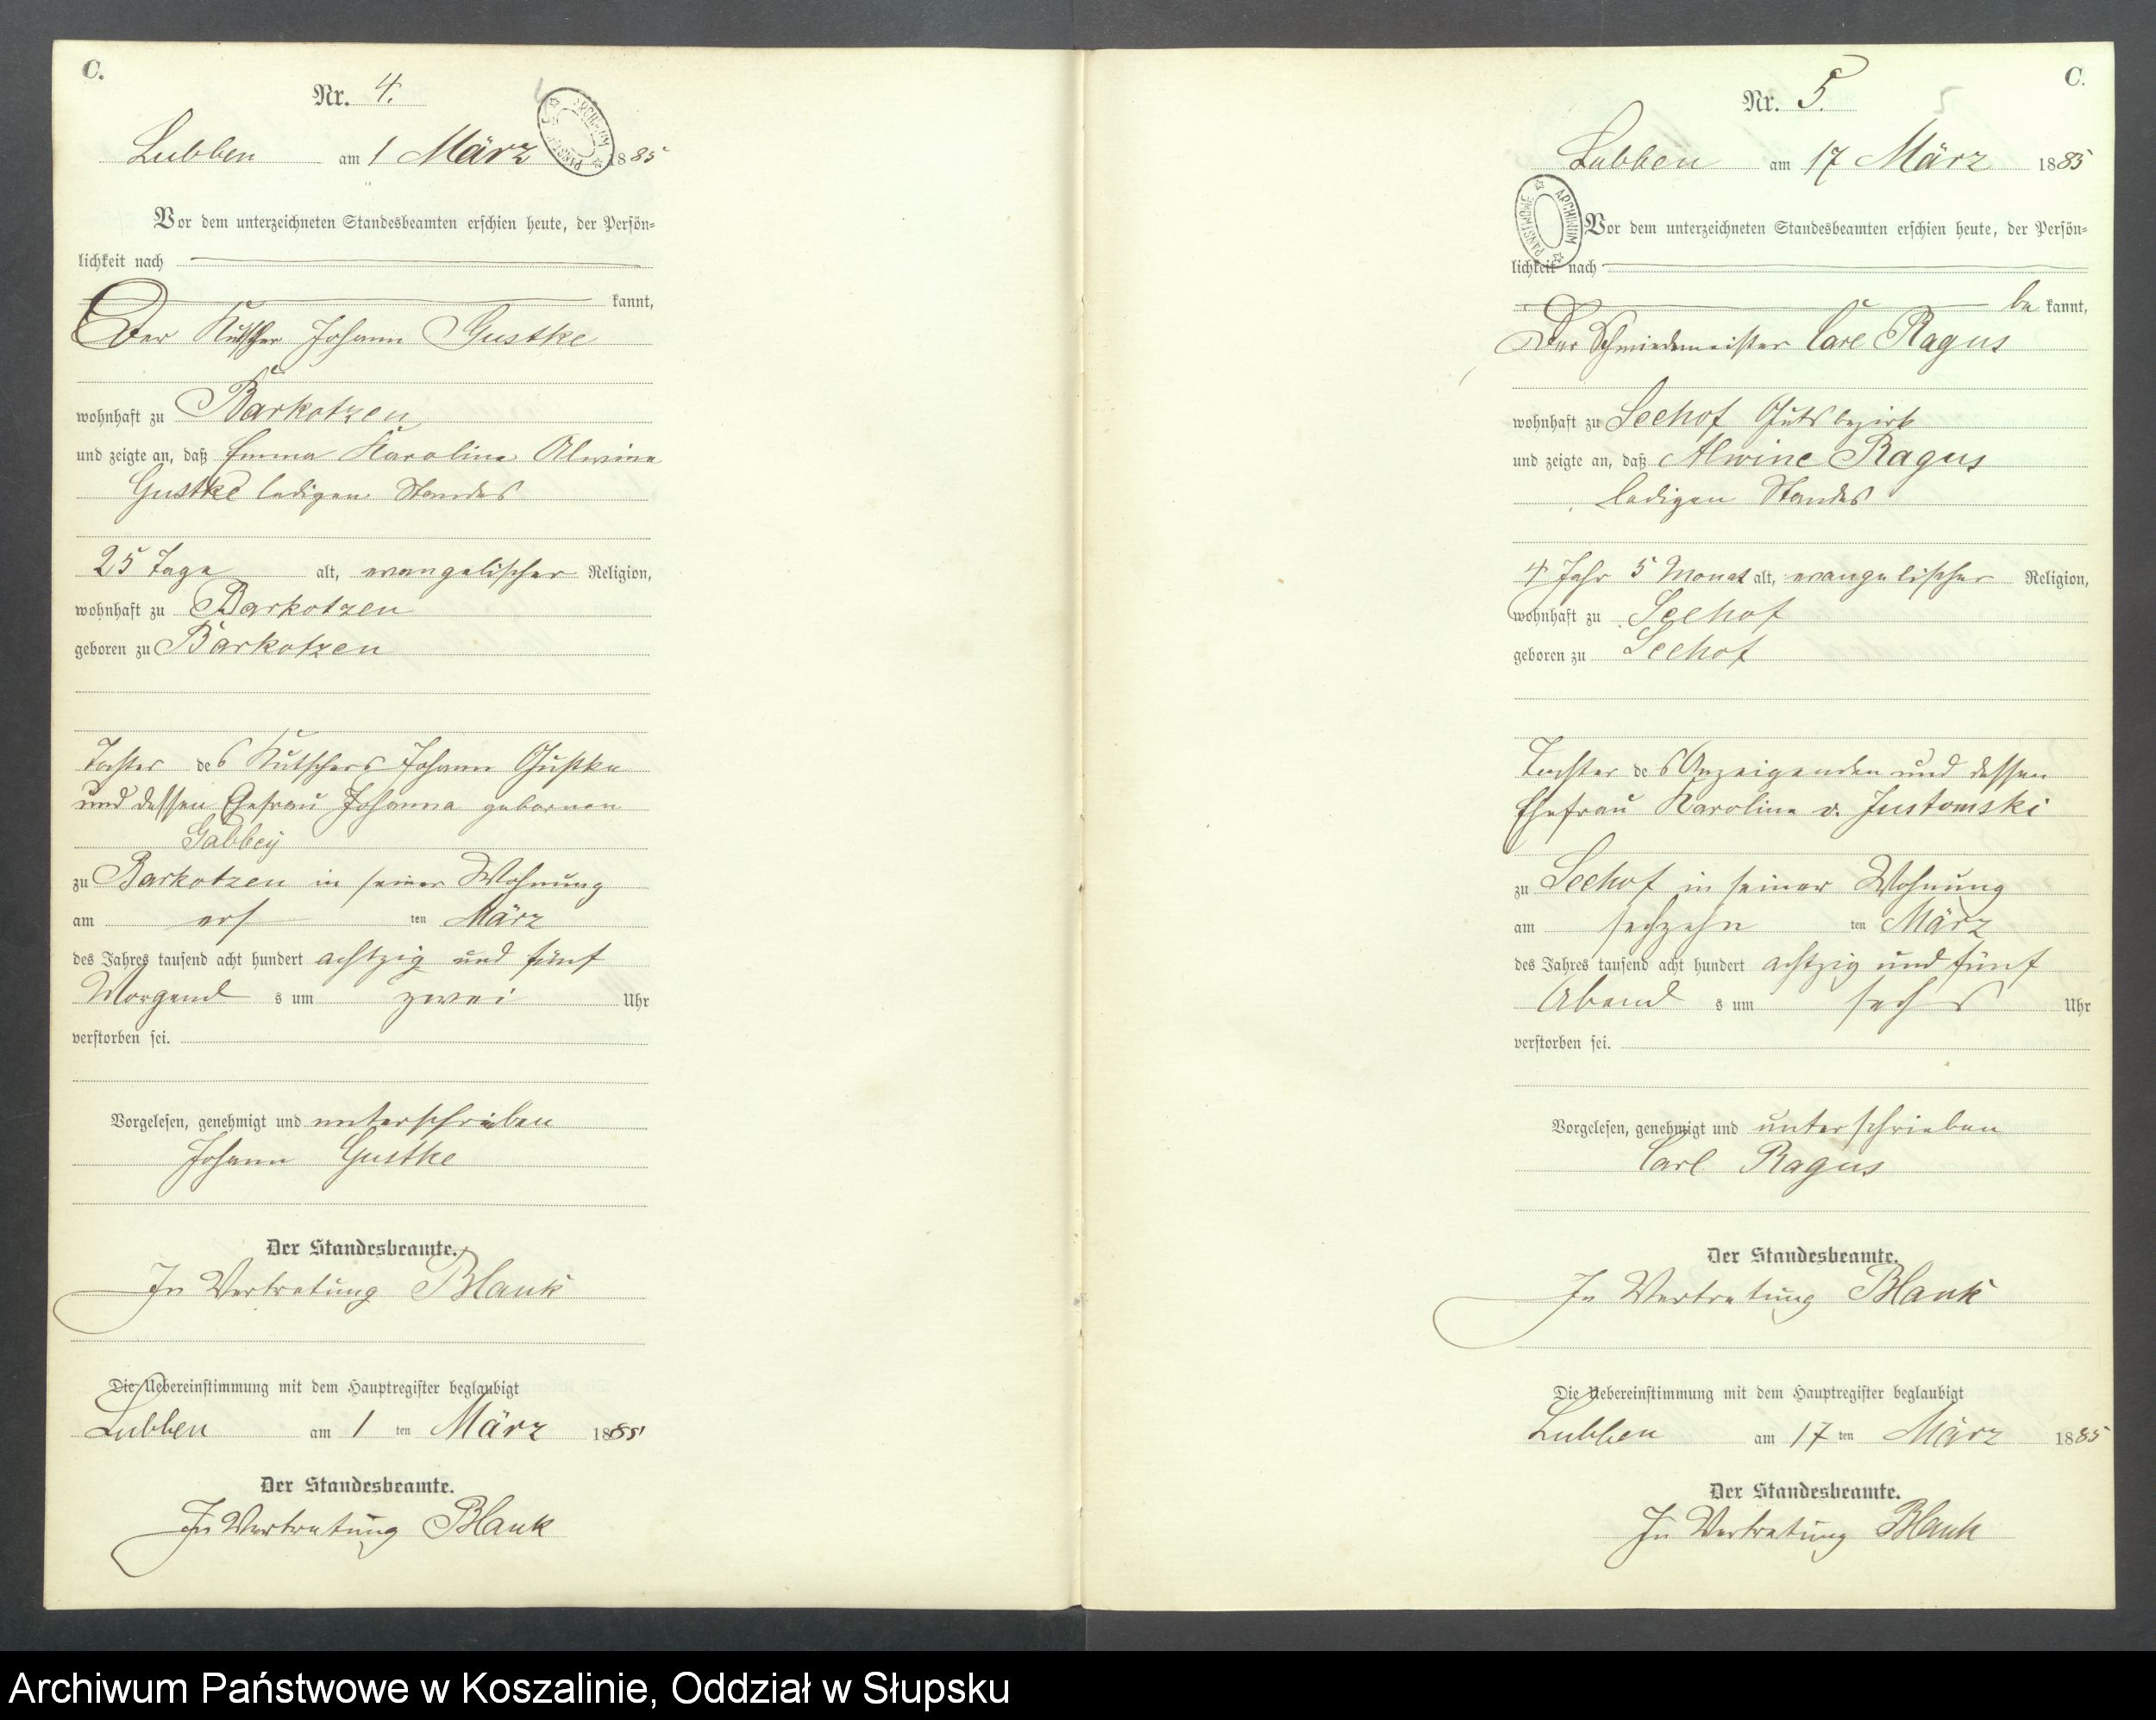 C.
Nr. 4.
Lubben am 1 März 1885
ARCHIWUM PAŃSTWOWE
Vor dem unterzeichneten Standesbeamten erschien heute, der Persön=
lichkeit nach
kannt,
Der Kutscher Johann Gustke
wohnhaft zu Barkotzen
und zeigte an, daß Emma Karoline Alwine
Gustke ledigen Standes
25 Tage alt, evangelischer Religion,
wohnhaft zu Barkotzen
geboren zu Barkotzen
Tochter des Kutschers Johann Gustke
und dessen Ehefrau Johanna gebornen
Gabbey
zu Barkotzen in seiner Wohnung
am ersten März
des Jahres tausend acht hundert achtzig und fünf
Morgens um zwei Uhr
verstorben sei.
Vorgelesen, genehmigt und unterschrieben
Johann Gustke
Der Standesbeamte.
In Vertretung Blank
Die Uebereinstimmung mit dem Hauptregister beglaubigt
Lubben am 1 ten März 1885
Der Standesbeamte.
In Vertretung Blank
C.
Nr. 5.
5
Lubben am 17 März 1885
ARCHIWUM PAŃSTWOWE
Vor dem unterzeichneten Standesbeamten erschien heute, der Persön=
lichkeit nach
be kannt,
Der Schmiedemeister Carl Ragus
wohnhaft zu Seehof Gutsbezirk
und zeigte an, daß Alwine Ragus
ledigen Standes
4 Jahr 5 Monat alt, evangelischer Religion,
wohnhaft zu Seehof
geboren zu Seehof
Tochter des Anzeigenden und dessen
Ehefrau Karoline v. Justomski
zu Seehof in seiner Wohnung
am sechzehn ten März
des Jahres tausend acht hundert achtzig und fünf
Abends um sechs Uhr
verstorben sei.
Vorgelesen, genehmigt und unterschrieben
Carl Ragus
Der Standesbeamte.
In Vertretung Blank
Die Uebereinstimmung mit dem Hauptregister beglaubigt
Lubben am 17 ten März 1885
Der Standesbeamte.
In Vertretung Blank
Archiwum Państwowe w Koszalinie, Oddział w Słupsku